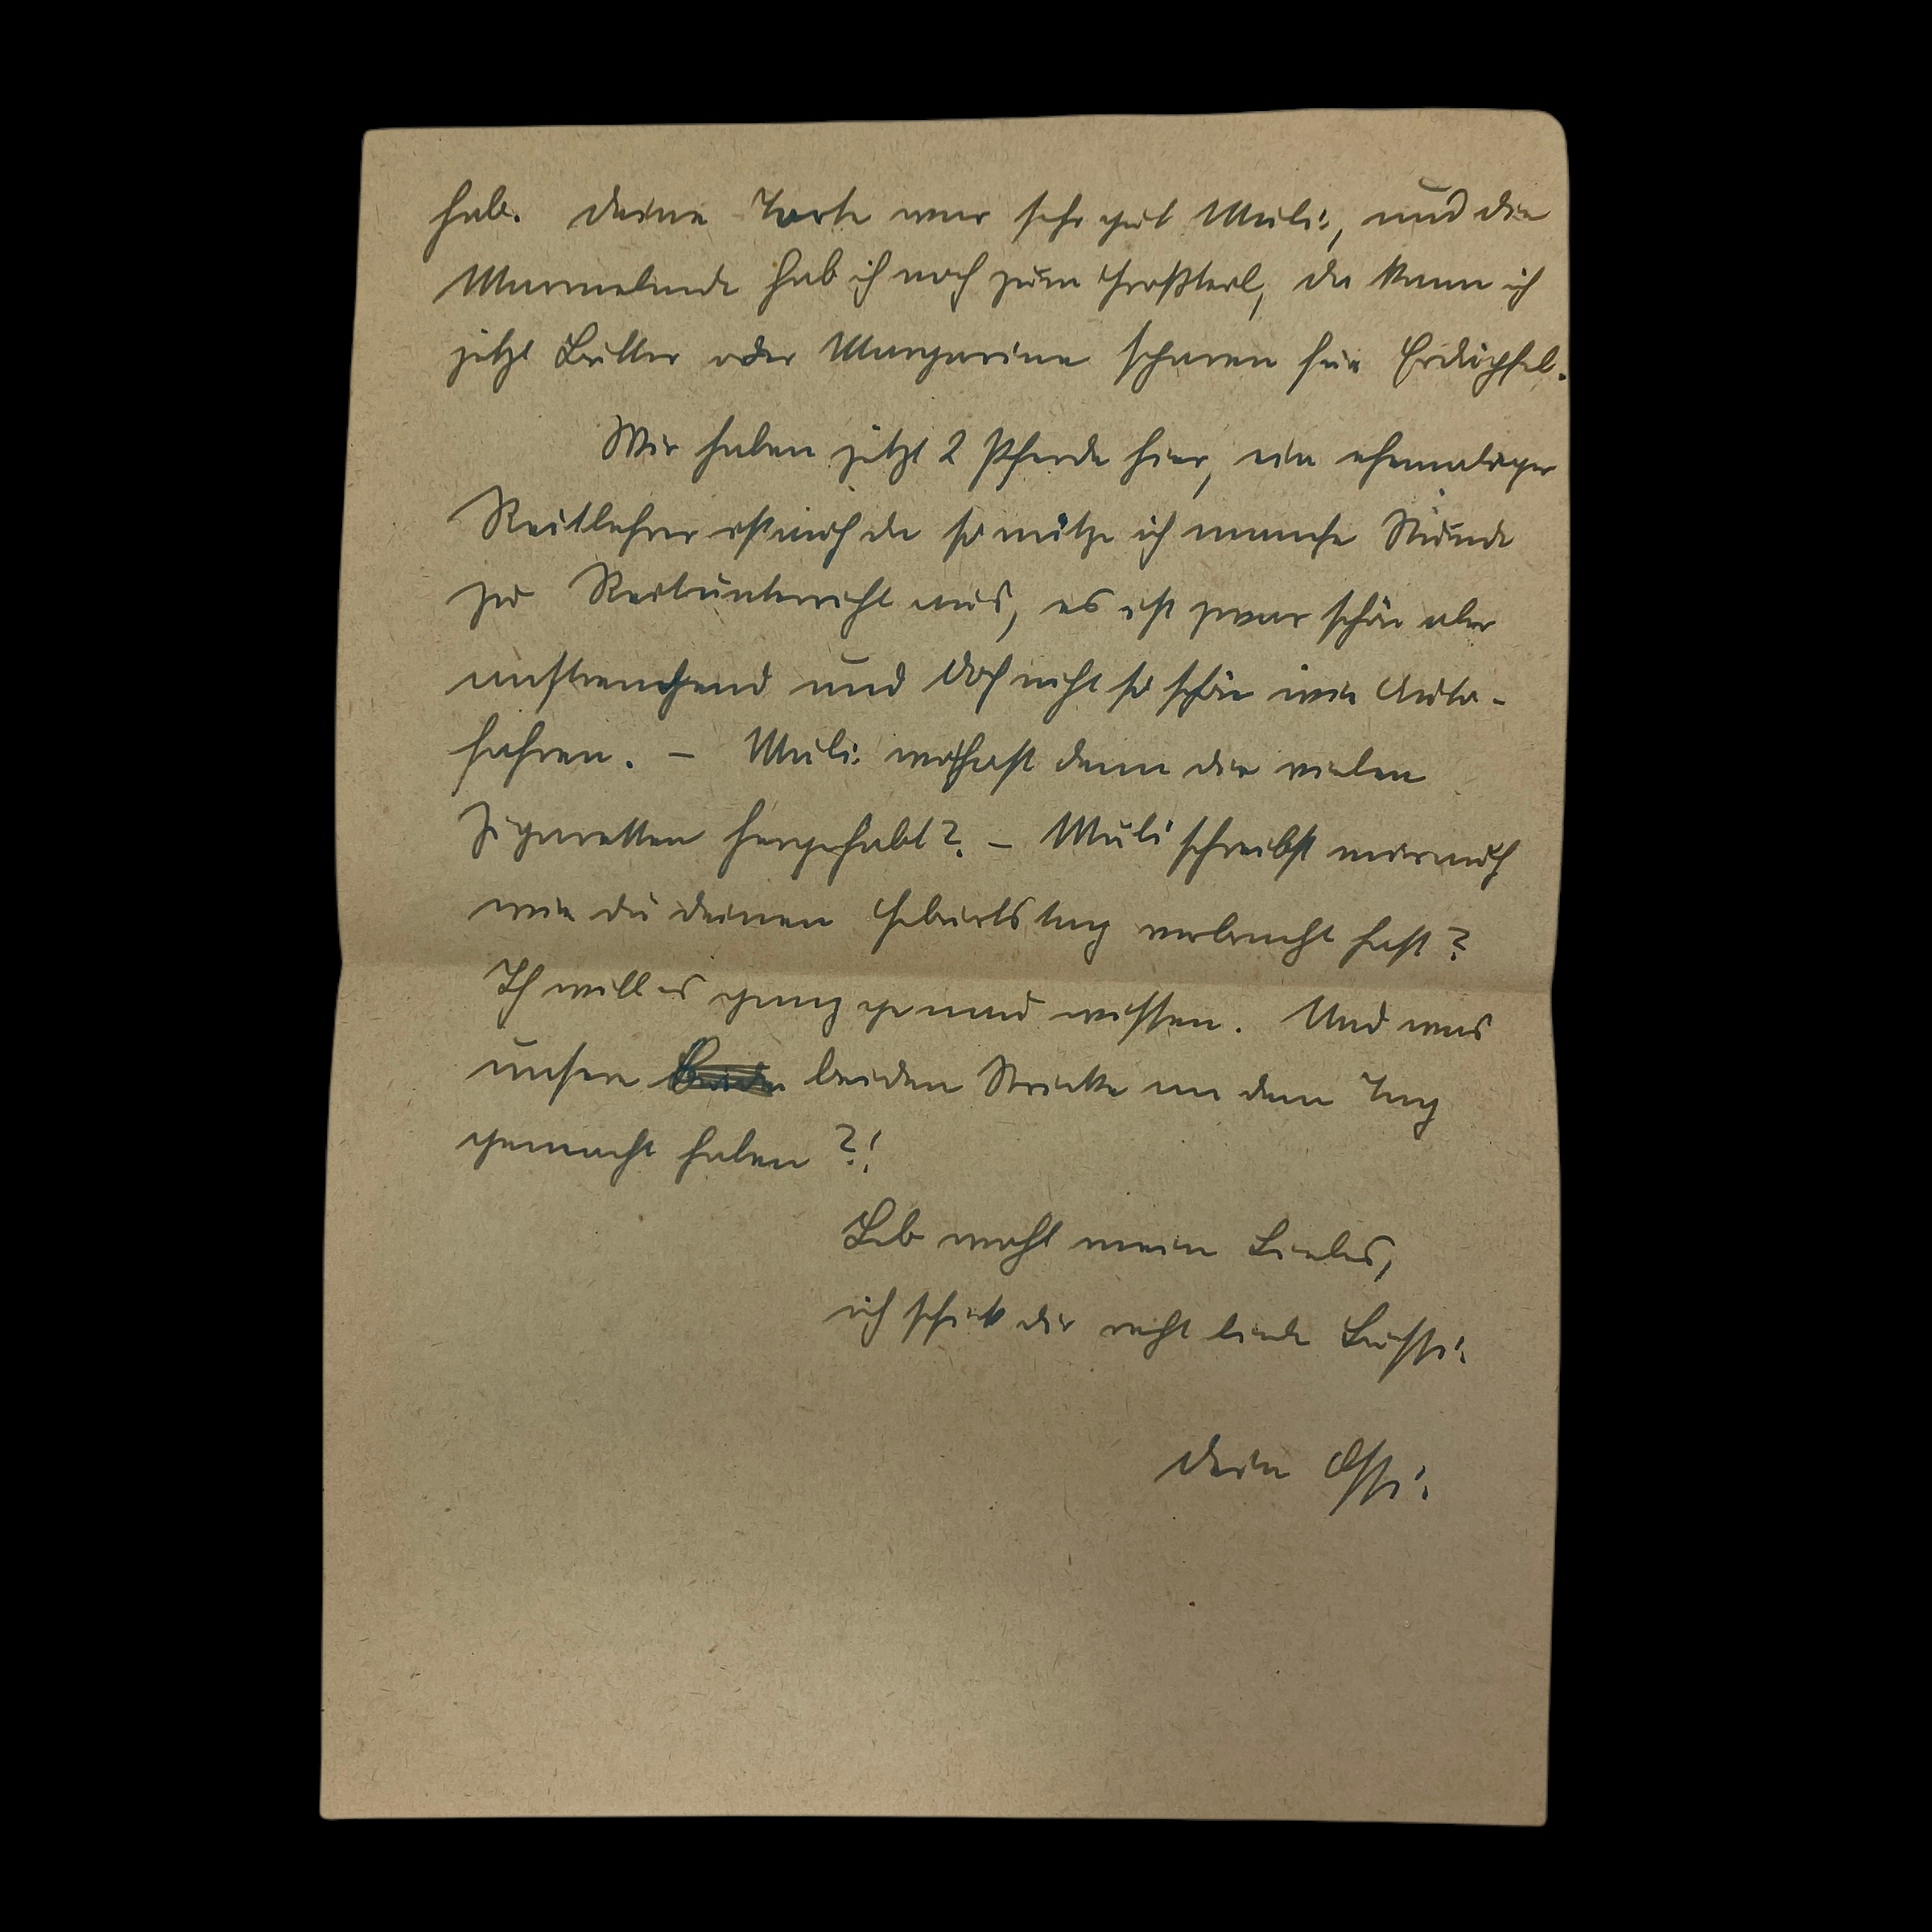 hab. Deine Torte war sehr gut Muli, und die
Marmelade hab ich noch zum Großteil, da kann ich
jetzt Butter oder Margarine sparen für Erdäpfel.
Wir haben jetzt 2 Pferde hier, ein ehemaliger
Reitlehrer ist auch da so nütze ich manche Stunde
zu Reitunterricht aus, es ist zwar schön aber
anstrengend und doch nicht so schön wie Auto-
fahren. – Muli wo hast denn die vielen
Zigaretten hergehabt? – Muli schreibst mir auch
wie du deinen Geburtstag verbracht hast?
Ich will es ganz genau wissen. Und was
unsere beiden Stricke an dem Tag
gemacht haben?!
Leb wohl mein Liebes,
ich schick dir recht liebe Bussi
Dein Ossi